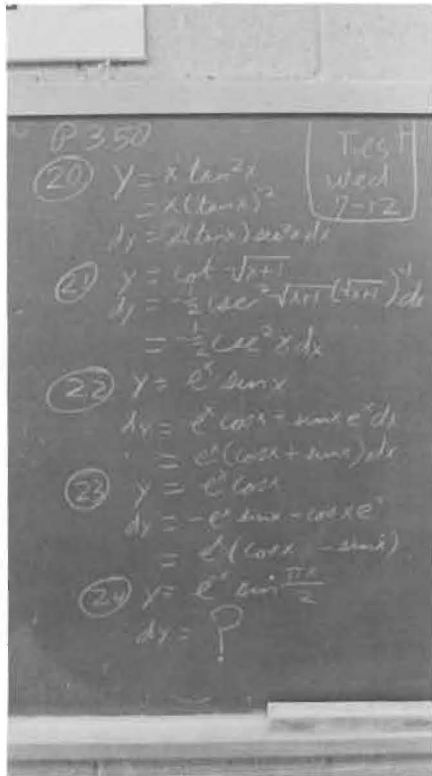 P 350
Test
wed
7-12
20 y = x tan²x
= x(tanx)²
dy = 2(tanx) sec²x dx
21 y = cot √x+1
dy = -½ csc² √x+1 (√x+1)⁻¹ dx
= -½ csc² x dx
22 y = eˣ sinx
dy = eˣ cosx + sinx eˣ dx
= eˣ (cosx + sinx) dx
23 y = eˣ cosx
dy = -eˣ sinx + cosx eˣ
= eˣ (cosx - sinx)
24 y = eˣ sin πx/2
dy = ?